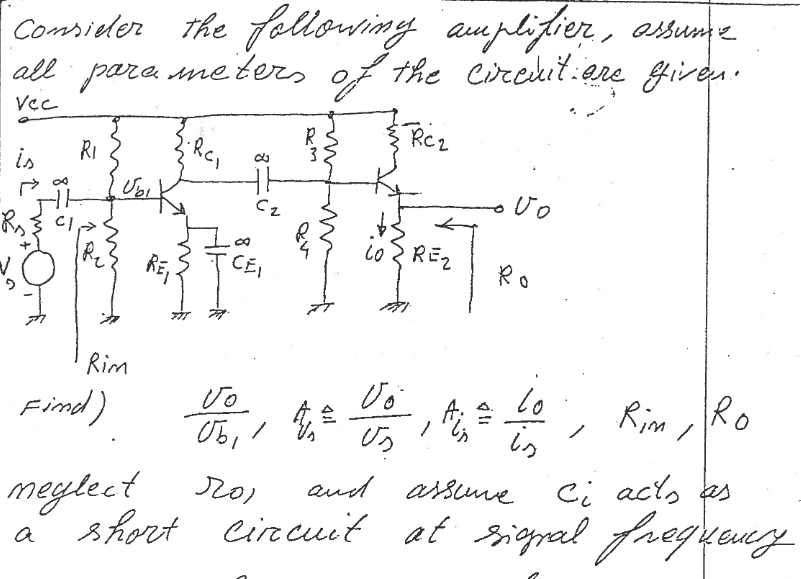 Consider the following amplifier, assume
all parameters of the circuit are given.
Vcc
R1
RC1
R3
RC2
is
∞
Vb1
∞
C1
C2
Rs
+
Vs
-
R2
RE1
∞
CE1
R4
io
RE2
Vo
Ro
Rin
Find) Vo/Vb1, Avs ≜ Vo/Vs, Ais ≜ io/is, Rin, Ro
neglect ro, and assume Ci acts as
a short circuit at signal frequency